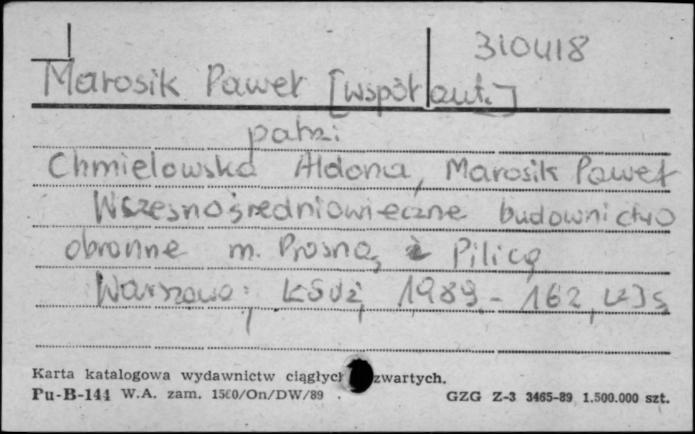 310418
Marosik Paweł [współaut.]
patrz:
Chmielowska Aldona, Marosik Paweł
Wczesnośredniowieczne budownictwo
obronne m. Prosną, a Pilicą
Warszawa; Łódź, 1989 - 162,
Karta katalogowa wydawnictw ciągłych zwartych.
Pu-B-144 W.A. zam. 1500/On/DW/89 GZG Z-3 3465-89 1.500.000 szt.